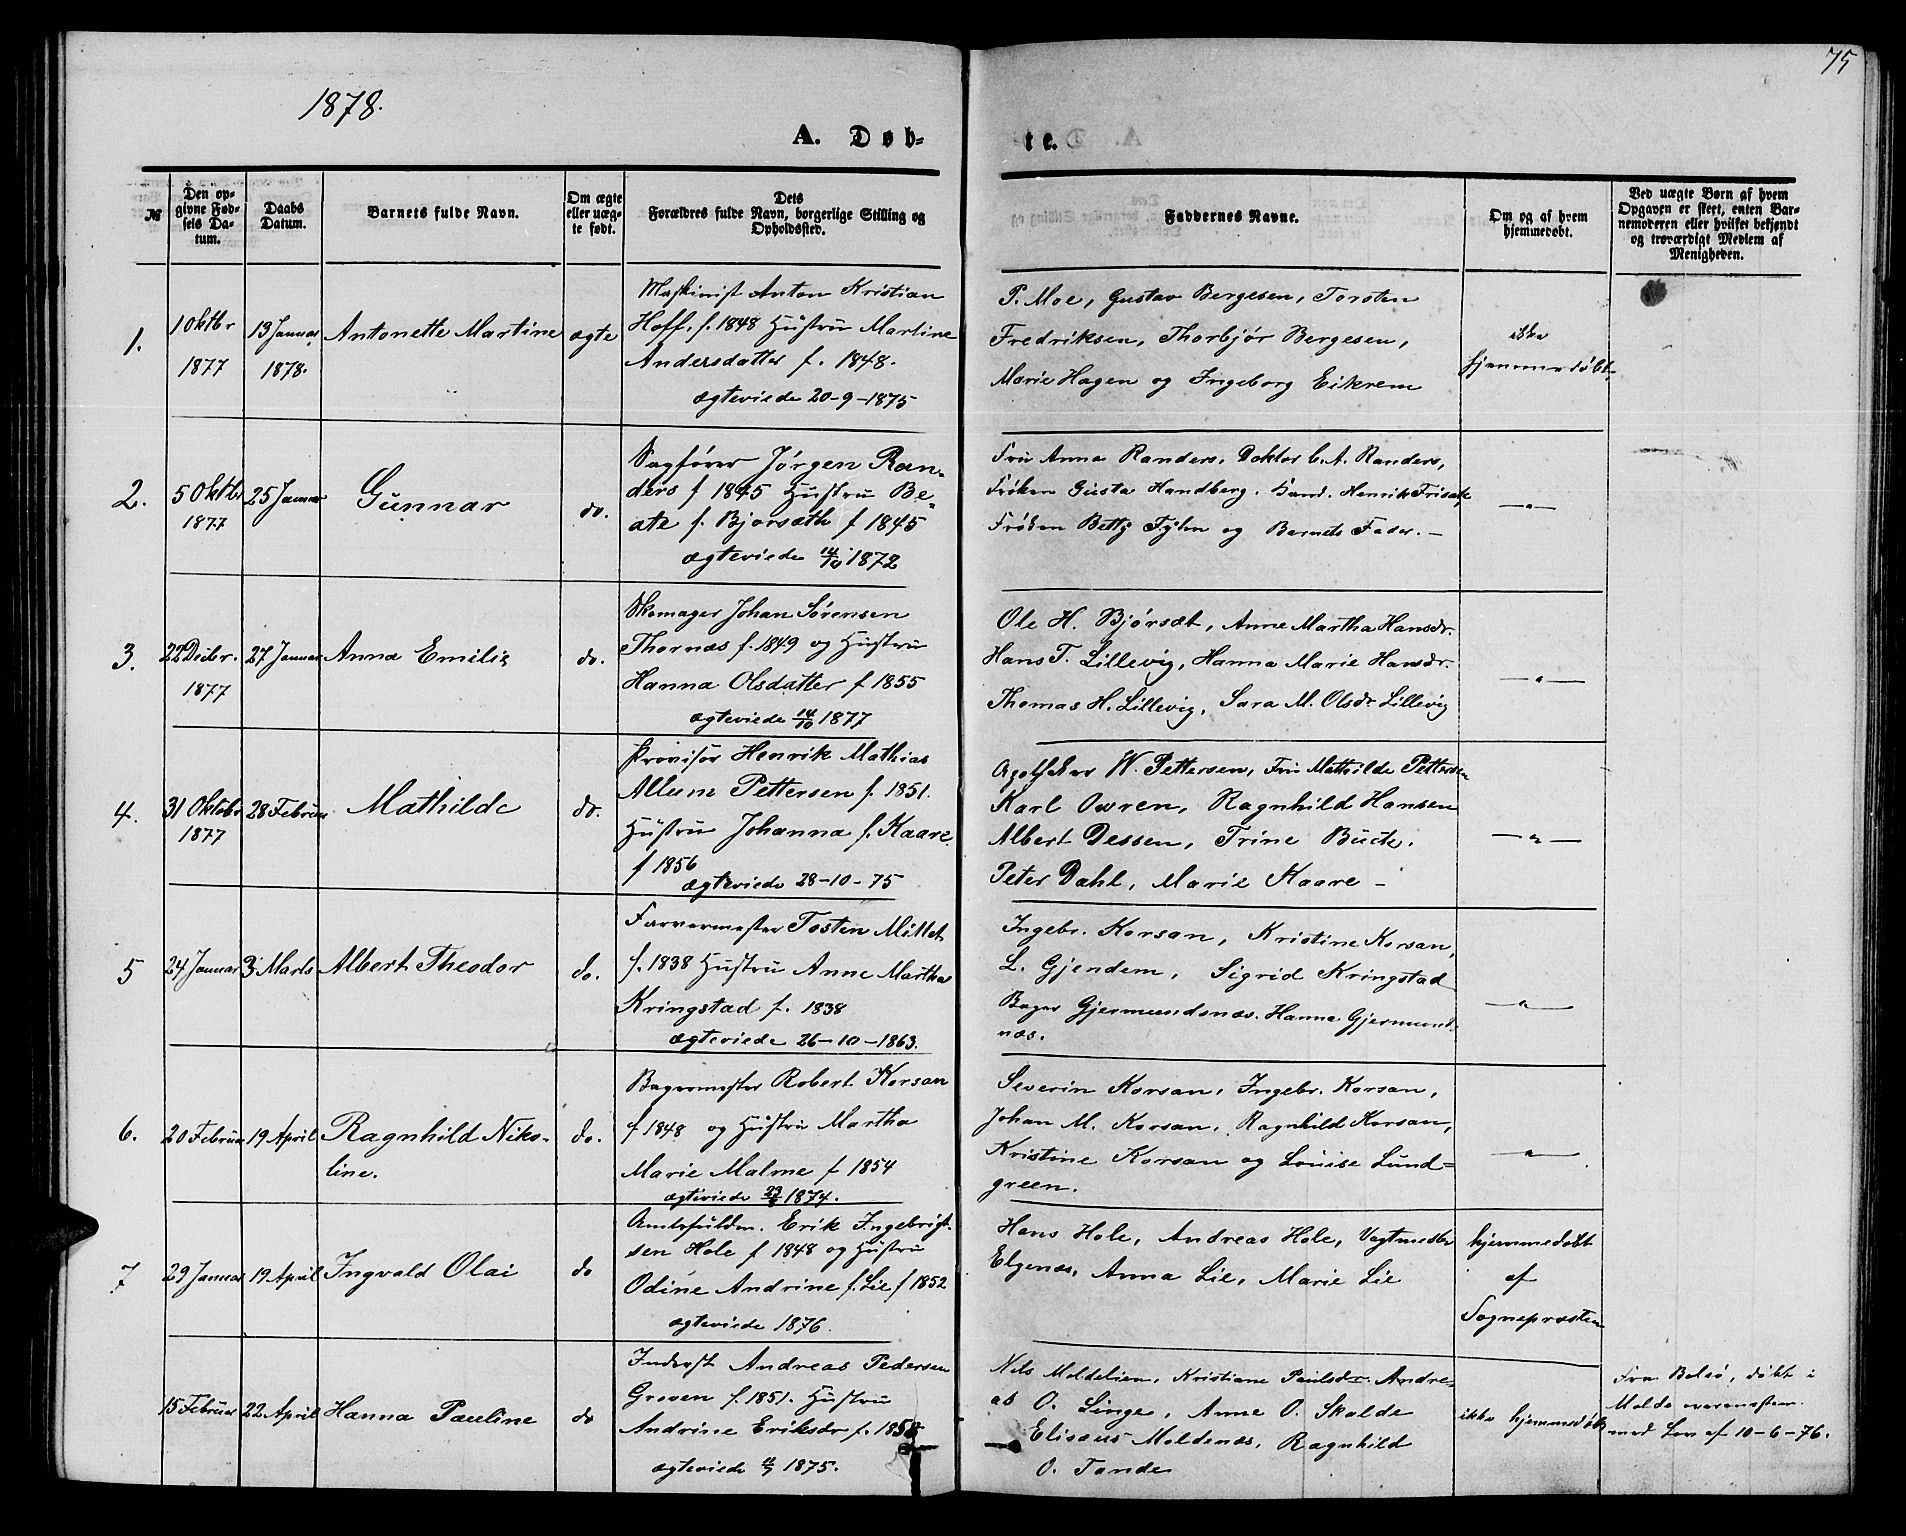 75
1878.
A. Døb=
te.
№
Den op-
givne Fød-
sels Da-
tum.
Daabs
Datum.
Barnets fulde Navn.
Om ægte
eller uæg-
te født.
Dets
Forældres fulde Navn, borgerlige Stilling og
Opholdssted.
Faddernes Navne.
Om og af hvem
hjemmedøbt.
Ved uægte Børn af hvem
Opgaven er skeet, enten Bar-
nemoderen eller hvilket bekjendt
og troværdigt Medlem af
Menigheden.
1.
1 Oktbr
1877
13 Januar
1878.
Antonette Martine
ægte
Maskinist Anton Kristian
Hoff. f. 1848 Hustru Martine
Andersdatter f. 1848.
ægteviede 20-9-1875
P. Moe, Gustav Bergesen, Torsten
Fredriksen, Thorbjør Bergesen,
Marie Hagen og Ingeborg Eikrem
ikke
hjemmedøbt.
2.
5 Oktbr
1877
25 Januar
Gunnar
do.
Sagfører Jørgen Ran-
ders f 1845 Hustru Be-
ate f. Bjorsæth f 1845
ægteviede 14/10 1872
Fru Anna Randers, Doktor C. A. Randers,
Frøken Gusta Handberg. Kand. Henrik
Frøken Betty og Barnets Fader. -
—"—
3.
22 Decbr.
1877
27 Januar
Anna Emilie
do.
Skomager Johan Sørensen
Thornæs f. 1849 og Hustru
Hanna Olsdatter f 1855
ægteviede 14/10 1877
Ole H. Bjørsæt, Anne Martha Hansdr.
Hans T. Lillevig, Hanna Marie Hansdr.
Thomas H. Lillevig, Sara M. Olsdr Lillevig
—"—
4.
31 Oktobr
1877
28 Februar
Mathilde
do.
Provisor Henrik Mathias
Pettersen f. 1851.
Hustru Johanna f. Kaare
f 1856
ægteviede 28-10-75
W. Pettersen, Fru Mathilde Pettersen
Karl Owren, Ragnhild Hansen
Albert Dessen, Trine
Peter Dahl, Marie Kaare -
—"—
5
24 Januar
3 Marts
Albert Theodor
do.
Farvermester Tosten Millet
f. 1838 Hustru Anne Martha
Kringstad f. 1838
ægteviede 26-10-1863.
Ingebr. Korsan, Kristine Korsan,
L. Gjendem, Sigrid Kringstad
Bager Gjermundsnæs. Hanna Gjermund-
næs.
—"—
6.
20 Februar
19 April
Ragnhild Niko-
line.
do.
Bagermester Robert Korsan
f 1848 og Hustru Martha
Marie Malme f 1854
ægteviede 1874.
Severin Korsan, Ingebr. Korsan,
Johan M. Korsan, Ragnhild Korsan,
Kristine Korsan og Louise Lund=
green.
—"—
7
29 Januar
19 April
Ingvald Olai
do
Amtsfuldm. Erik Ingebrigt-
sen Hole f 1848 og Hustru
Odine Andrine f. Lie f 1852
ægteviede 1876.
Hans Hole, Andreas Hole, Vagtmester
Elgenæs, Anna Lie, Marie Lie
hjemmedøbt
af
Sognepræsten
15 Februar
22 April
Hanna Pauline
do
Inderst Andreas Pedersen
Greven f. 1851. Hustru
Andrine Eriksdr f.
ægteviede 1875.
Nils Moldelien, Kristiane Paulsdr. Andre-
as O. Singe, Anne O. Skalde
Elisæus Moldenæs, Ragnhild
O. Tande
ikke hjemmedøbt
Fra Bolsø, døbt i
Molde overensstem.
med Lov af 10-6-76.